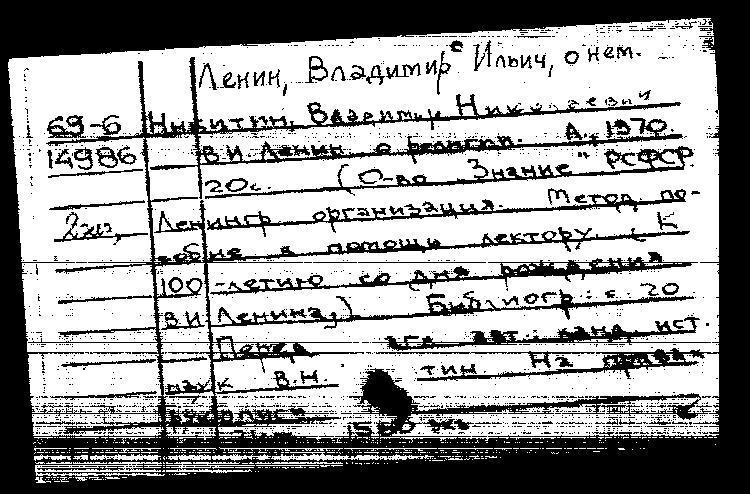 Ленин, Владимир Ильич, о нем.
69-6 Никитин, Владимир Николаевич
14986 В.И. Ленин о религии. Л., 1970.
20с. (О-во "Знание" РСФСР
2хр, Ленингр организация. Метод по-
собие в помощь лектору. (К
100-летию со дня рождения
В.И. Ленина) Библиогр: с. 20
Перед авт.: канд. ист.
наук В.Н. тин. На правах
рукописи
1500 экз